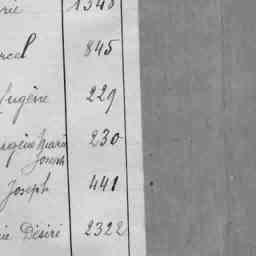 rie 1548
rcel 845
Eugène 229
Eugène Marie 230
Joseph
Joseph 441
ie Désiré 2322